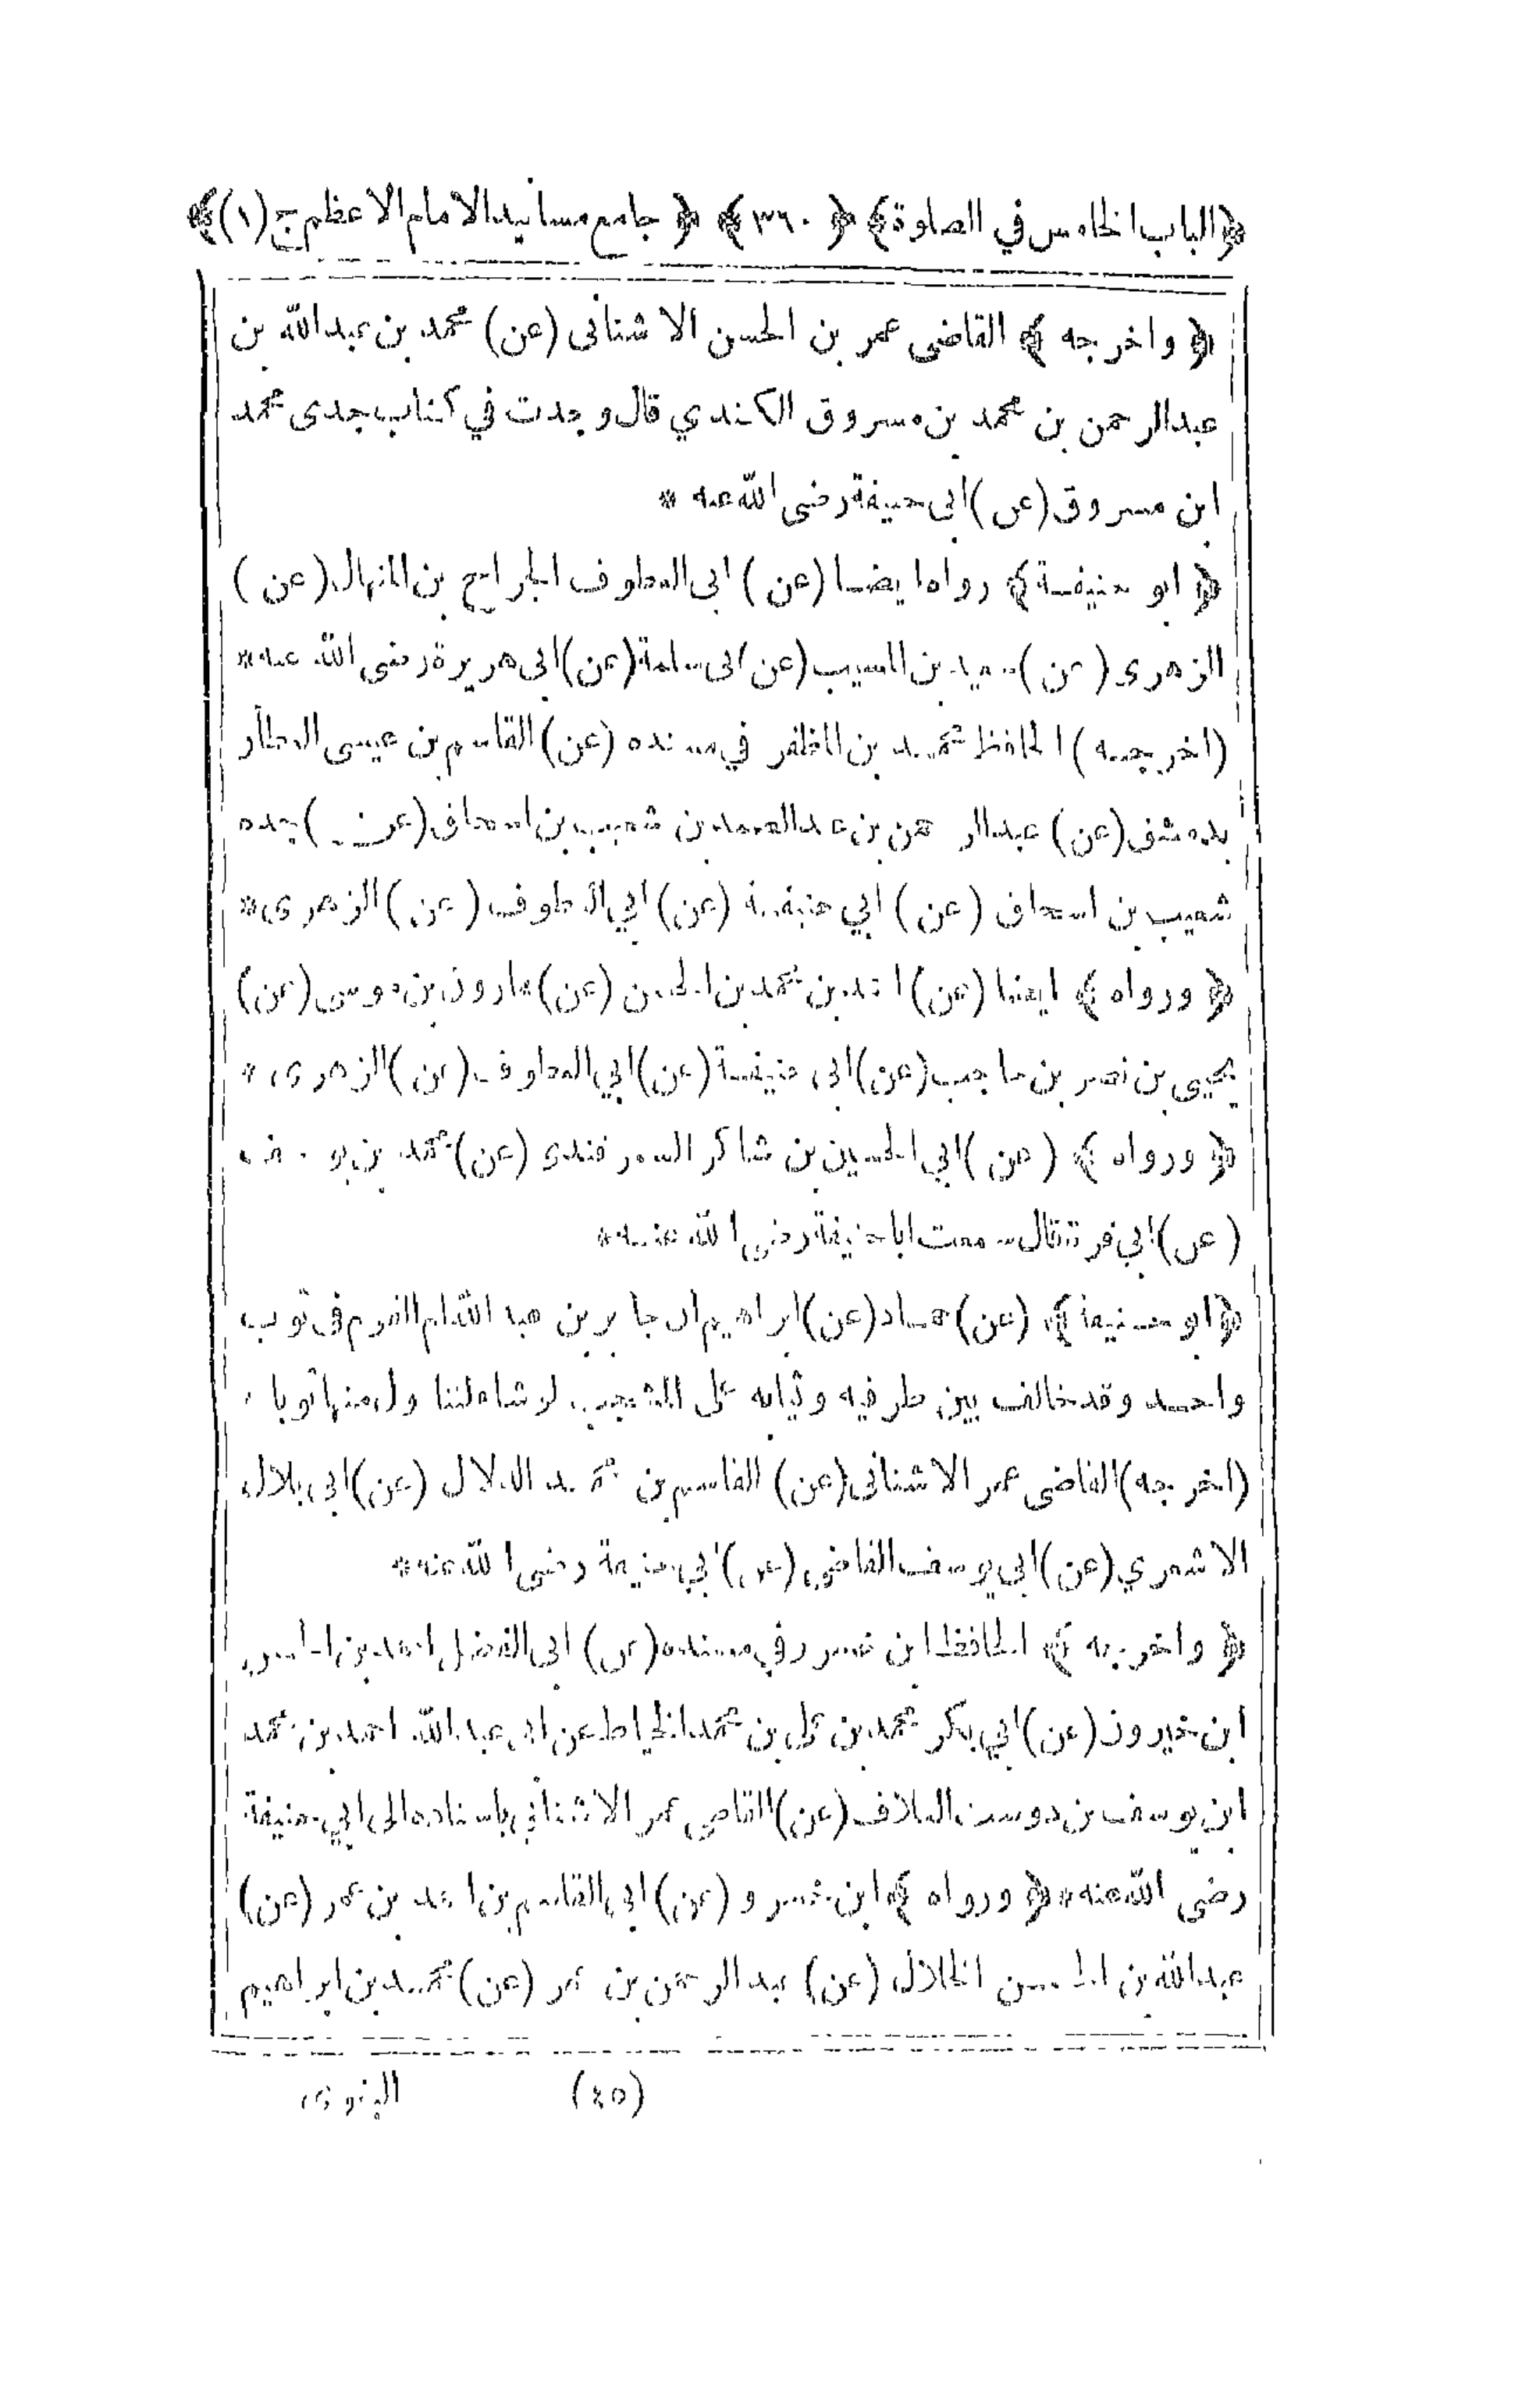 ﴿الباب الخامس في الصلوة﴾ ﴿٣٦٠﴾ ﴿جامع مسانيد الامام الاعظم ج (١)﴾
﴿ واخرجه ﴾ القاضى عمر بن الحسن الاشنانى (عن) محمد بن عبدالله بن
عبدالرحمن بن محمد بن مسروق الكندي قال وجدت في كتاب جدى محمد
ابن مسروق (عن) ابى حنيفة رضى الله عنه *
﴿ ابو حنيفة ﴾ رواه ايضا (عن) ابى العطوف الجراح بن المنهال (عن)
الزهرى (عن) سعيد بن المسيب (عن) ابى سلمة (عن) ابى هريرة رضى الله عنه *
(اخرجه) الحافظ محمد بن المظفر في مسنده (عن) القاسم بن عيسى العطار
بدمشق (عن) عبدالرحمن بن عبدالصمد بن شعيب بن اسحاق (عن) جده
شعيب بن اسحاق (عن) ابي حنيفة (عن) ابي العطوف (عن) الزهرى *
﴿ ورواه ﴾ ايضا (عن) احمد بن محمد بن الحسن (عن) هارون بن موسى (عن)
يحيى بن نصر بن حاجب (عن) ابى حنيفة (عن) ابي العطوف (عن) الزهرى *
﴿ ورواه ﴾ (عن) ابي الحسين بن شاكر السمرقندى (عن) محمد بن يوسف
(عن) ابي قرة قال سمعت ابا حنيفة رضى الله عنه *
﴿ ابو حنيفة ﴾ (عن) حماد (عن) ابراهيم ان جابر بن عبد الله ام القوم فى ثوب
واحد وقد خالف بين طرفيه وثيابه على المشجب لو شاء لتناول منها ثوبا *
(اخرجه) القاضى عمر الاشنانى (عن) القاسم بن محمد الدلال (عن) ابى بلال
الاشعري (عن) ابى يوسف القاضى (عن) ابي حنيفة رضى الله عنه *
﴿ واخرجه ﴾ الحافظ ابن خسرو في مسنده (عن) ابى الفضل احمد بن الحسن
ابن خيرون (عن) ابي بكر محمد بن على بن محمد الخياط عن ابى عبدالله احمد بن محمد
ابن يوسف بن دوست العلاف (عن) القاضى عمر الاشنانى باسناده الى ابي حنيفة
رضى الله عنه * ﴿ ورواه ﴾ ابن خسرو (عن) ابى القاسم بن احمد بن عمر (عن)
عبدالله بن الحسن الخلال (عن) عبدالرحمن بن عمر (عن) محمد بن ابراهيم
(٤٥)
البغوى